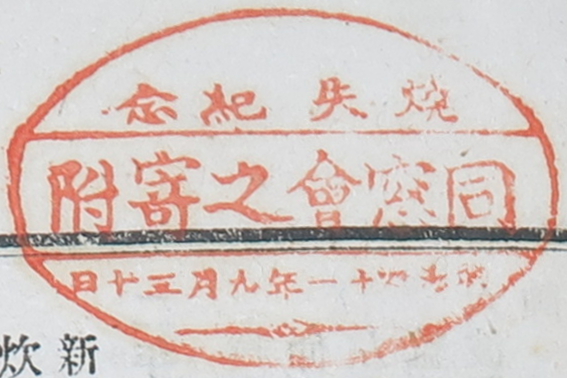 燒失紀念
同窓會之寄附
明治四十一年九月三十日
新炊